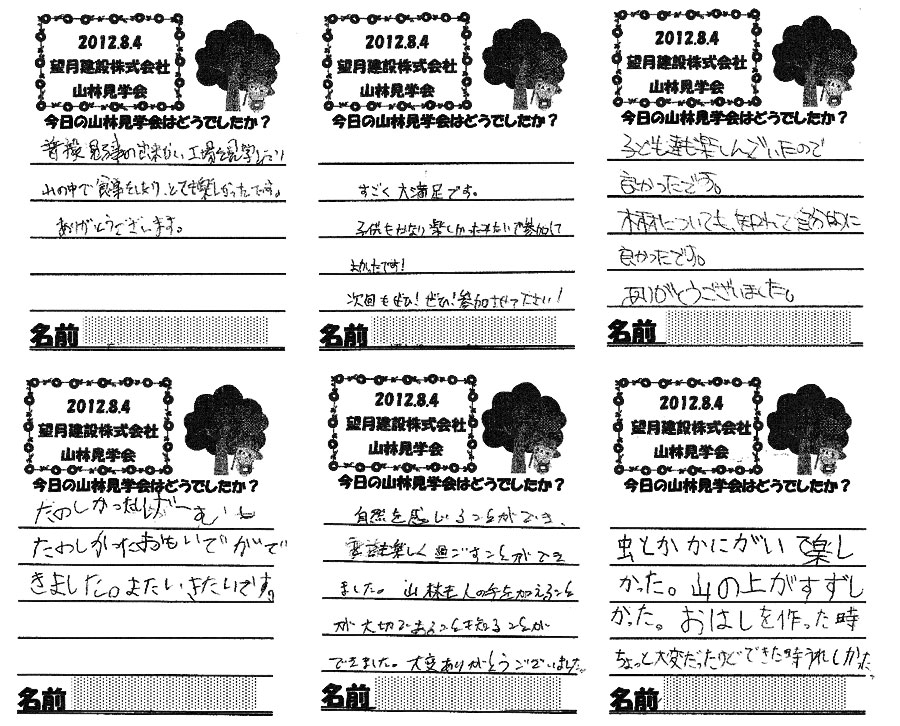 2012.8.4
望月建設株式会社
山林見学会
今日の山林見学会はどうでしたか？
普段見る事の出来ない工場を見学したり
山の中で食事をしたり、とても楽しかったです。
ありがとうございます。
名前
2012.8.4
望月建設株式会社
山林見学会
今日の山林見学会はどうでしたか？
すごく大満足です。
子供もかなり楽しかったみたいで参加して
よかったです！
次回もぜひ！ぜひ！参加させて下さい！
名前
2012.8.4
望月建設株式会社
山林見学会
今日の山林見学会はどうでしたか？
子ども達も楽しんでいたので
良かったです。
木材についても、知れて自分的に
良かったです。
ありがとうございました。
名前
2012.8.4
望月建設株式会社
山林見学会
今日の山林見学会はどうでしたか？
たのしかった
たのしかったおもいでがで
きました。またいきたいです。
名前
2012.8.4
望月建設株式会社
山林見学会
今日の山林見学会はどうでしたか？
自然を感じることができ、
も楽しく過ごすことができ
ました。山林も人の手を加えること
が大切であることを知ることが
できました。大変ありがとうございました。
名前
2012.8.4
望月建設株式会社
山林見学会
今日の山林見学会はどうでしたか？
虫とかかにがいて楽し
かった。山の上がすずし
かった。おはしを作った時
ちょっと大変だったけどできた時うれしかった。
名前